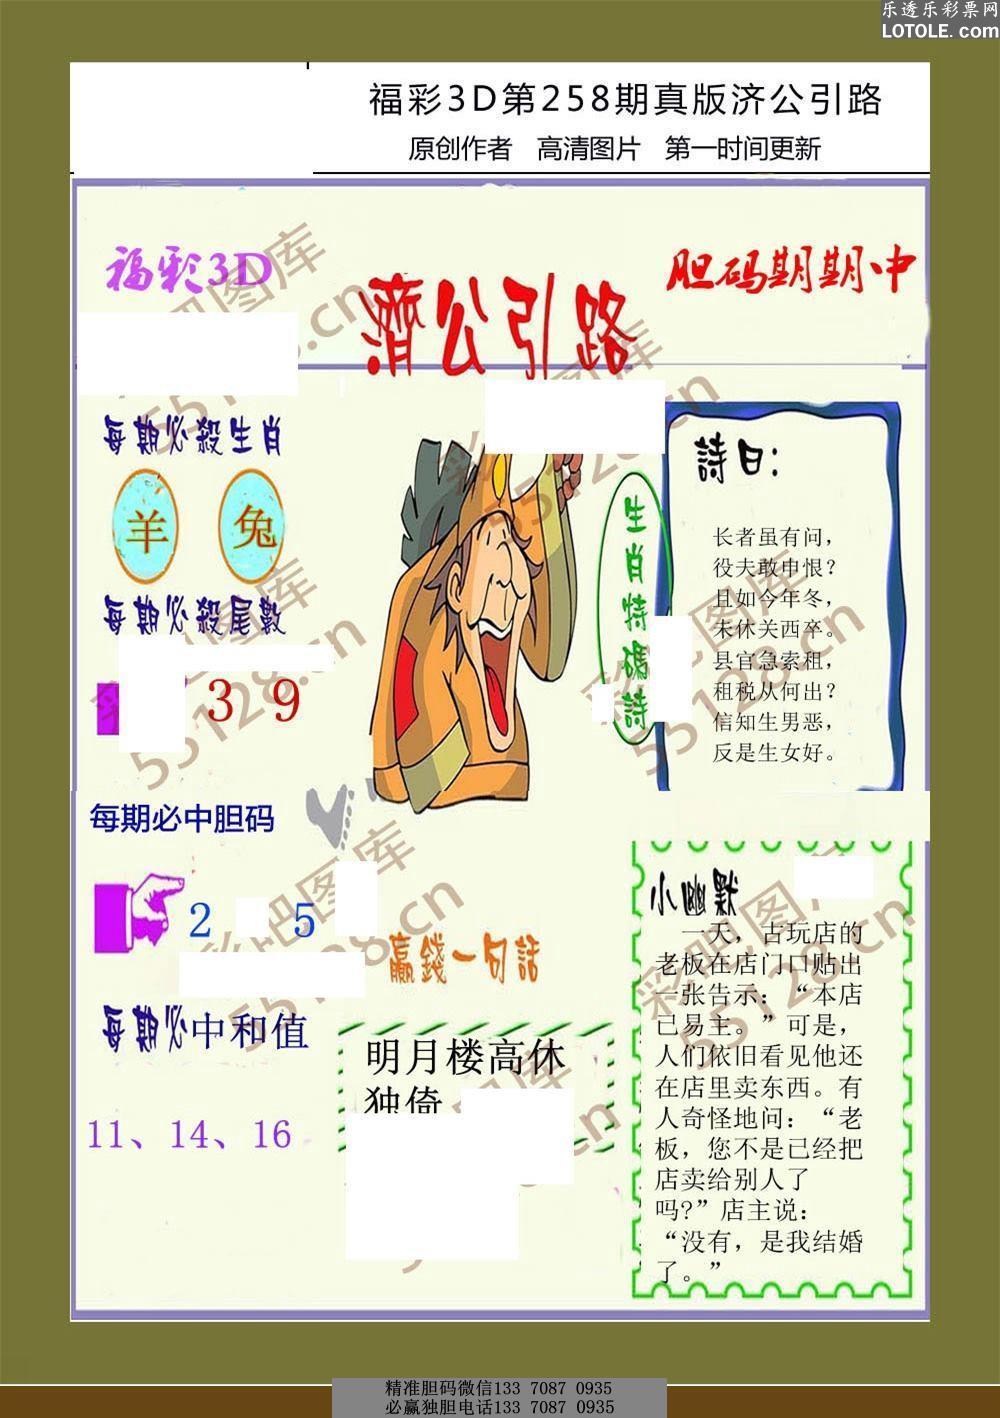 乐透乐彩票网
LOTOLE.com
福彩3D第258期真版济公引路
原创作者 高清图片 第一时间更新
福彩3D
胆码期期中
濟公引路
每期必殺生肖
羊 兔
每期必殺尾數
3 9
每期必中胆码
2 5
每期必中和值
11、14、16
生肖特碼詩
詩曰:
长者虽有问，
役夫敢申恨？
且如今年冬，
未休关西卒。
县官急索租，
租税从何出？
信知生男恶，
反是生女好。
赢錢一句話
明月楼高休
独倚
小幽默
一天，古玩店的
老板在店门口贴出
一张告示：“本店
已易主。”可是，
人们依旧看见他还
在店里卖东西。有
人奇怪地问：“老
板，您不是已经把
店卖给别人了
吗?”店主说：
“没有，是我结婚
了。”
彩吧图库
55128.cn
精准胆码微信133 7087 0935
必赢独胆电话133 7087 0935